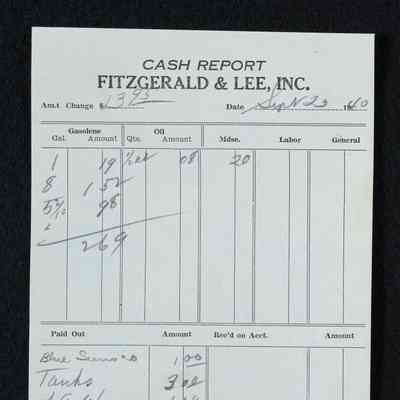 CASH REPORT
FITZGERALD & LEE, INC.
Am.t Change $ 13 95 Date Sept 23 1940
Gasolene Oil
Gal. Amount Qts. Amount Mdse. Labor General
1 19 08 20
8 1 52
5 98
2 69
Paid Out Amount Rec'd on Acct. Amount
Blue 1 00
Tanks 3 00